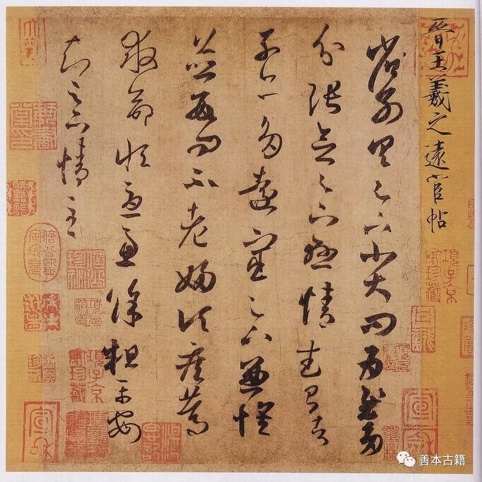 晉王羲之遠宦帖
省別具足下小大問為慰多
分張念足下懸情武昌諸
子亦多遠宦足下兼懷
並數問不老婦頃疾篤
救命恒憂慮餘粗平安
知足下情至
善本古籍